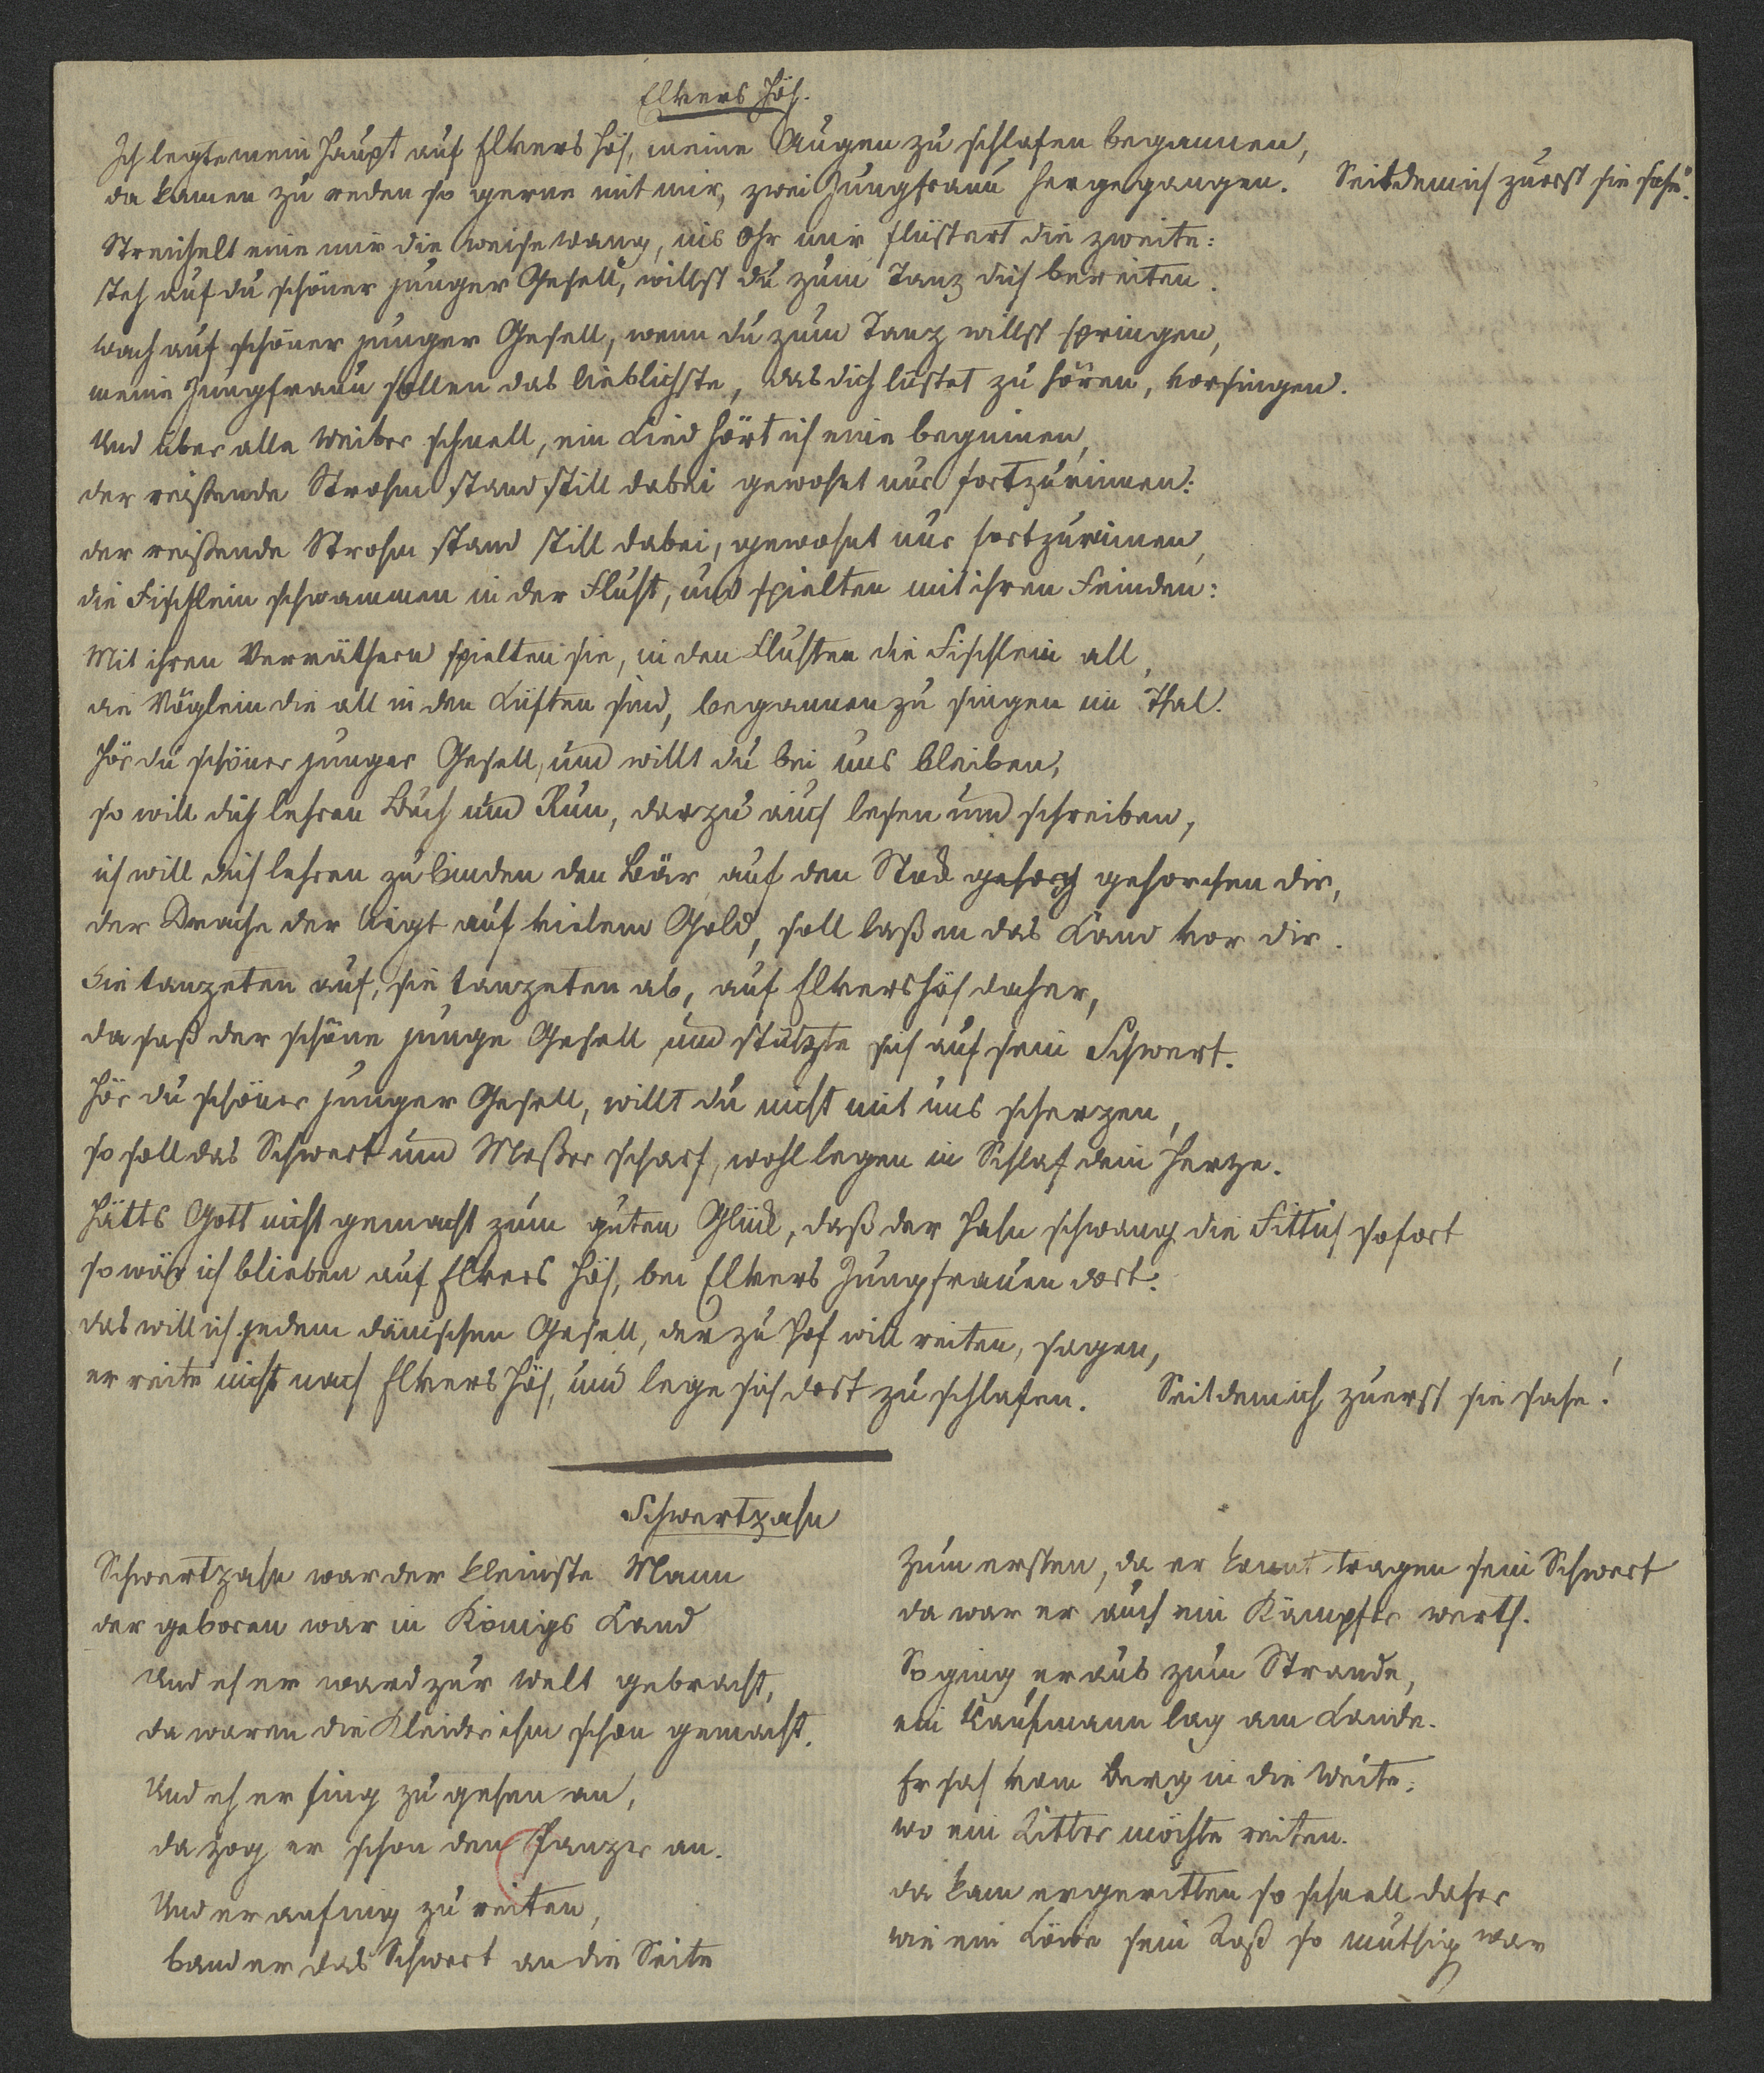 Elvers Höh.
Ich legte mein Haupt auf Elvers Höh, meine Augen zu schlafen begannen,
da kamen zu reden so gerne mit mir, zwei Jungfraun hergegangen. Seitdem ich zuerst sie sahe!
Streichelt eine mir die weise Wang, ins Ohr mir flüstert die zweite:
steh auf du schöner junger Gesell, willst du zum Tanz dich bereiten.
Wach auf schöner junger Gesell, wenn du zum Tanz willst springen,
meine Jungfraun sollen das lieblichste, das dich lüstet zu hören, vorsingen.
Und über alle Weiber schnell, ein Lied hört ich eine beginnen,
der reißende Strohm stand still dabei gewohnt nur fortzurinnen:
der reißende Strohm stand still dabei, gewohnt nur fortzurinnen,
die Fischlein schwammen in der Fluht, und spielten mit ihren Feinden:
Mit ihren Verräthern spielten sie, in den Fluhten die Fischlein all,
die Vöglein die all in den Lüften sind, begannen zu singen im Thal.
Hör du schöner junger Gesell, und willt du bei uns bleiben,
so will dich lehren Buch und Run, darzu auch lesen und schreiben,
ich will dich lehren zu binden den Bär, auf den Stock gehorch gehorchen dir,
der Drache der liegt auf vielem Gold, soll laßen das Land vor dir.
Sie tanzeten auf, sie tanzeten ab, auf Elvershöh daher,
da saß der schöne junge Gesell und stützte sich auf sein Schwert.
Hör du schöner junger Gesell, willt du nicht mit uns scherzen,
so soll das Schwert und Meßer scharf, wohl legen in Schlaf dein Herze.
Hätts Gott nicht gemacht zum guten Glück, daß der Hahn schwang die Fittich sofort
so wär ich blieben auf Elvers Höh, bei Elvers Jungfrauen dort.
das will ich jedem dänischen Gesell, der zu Hof will reiten, sagen,
er reite nicht nach Elvers Höh, und lege sich dort zu schlafen. Seitdem ich zuerst sie sahe!
Schwertzahn
Schwertzahn war der kleinste Mann
der geboren war in Königs Land
Und eh er ward zur Welt gebracht,
da waren die Kleider ihm schon gemacht.
Und eh er fing zu gehen an,
da zog er schon den Panzer an.
Und er anfing zu reiten,
band er das Schwert an die Seite
Zum ersten, da er konnt tragen sein Schwert
da war er auch ein Kämpfer werth.
So ging er aus zum Strande,
ein Kaufmann lag am Lande.
Er sah vom Berg in die Weite,
wo ein Ritter möchte reiten.
da kam er geritten so schnell daher
wie ein Löwe sein Roß so muthig war